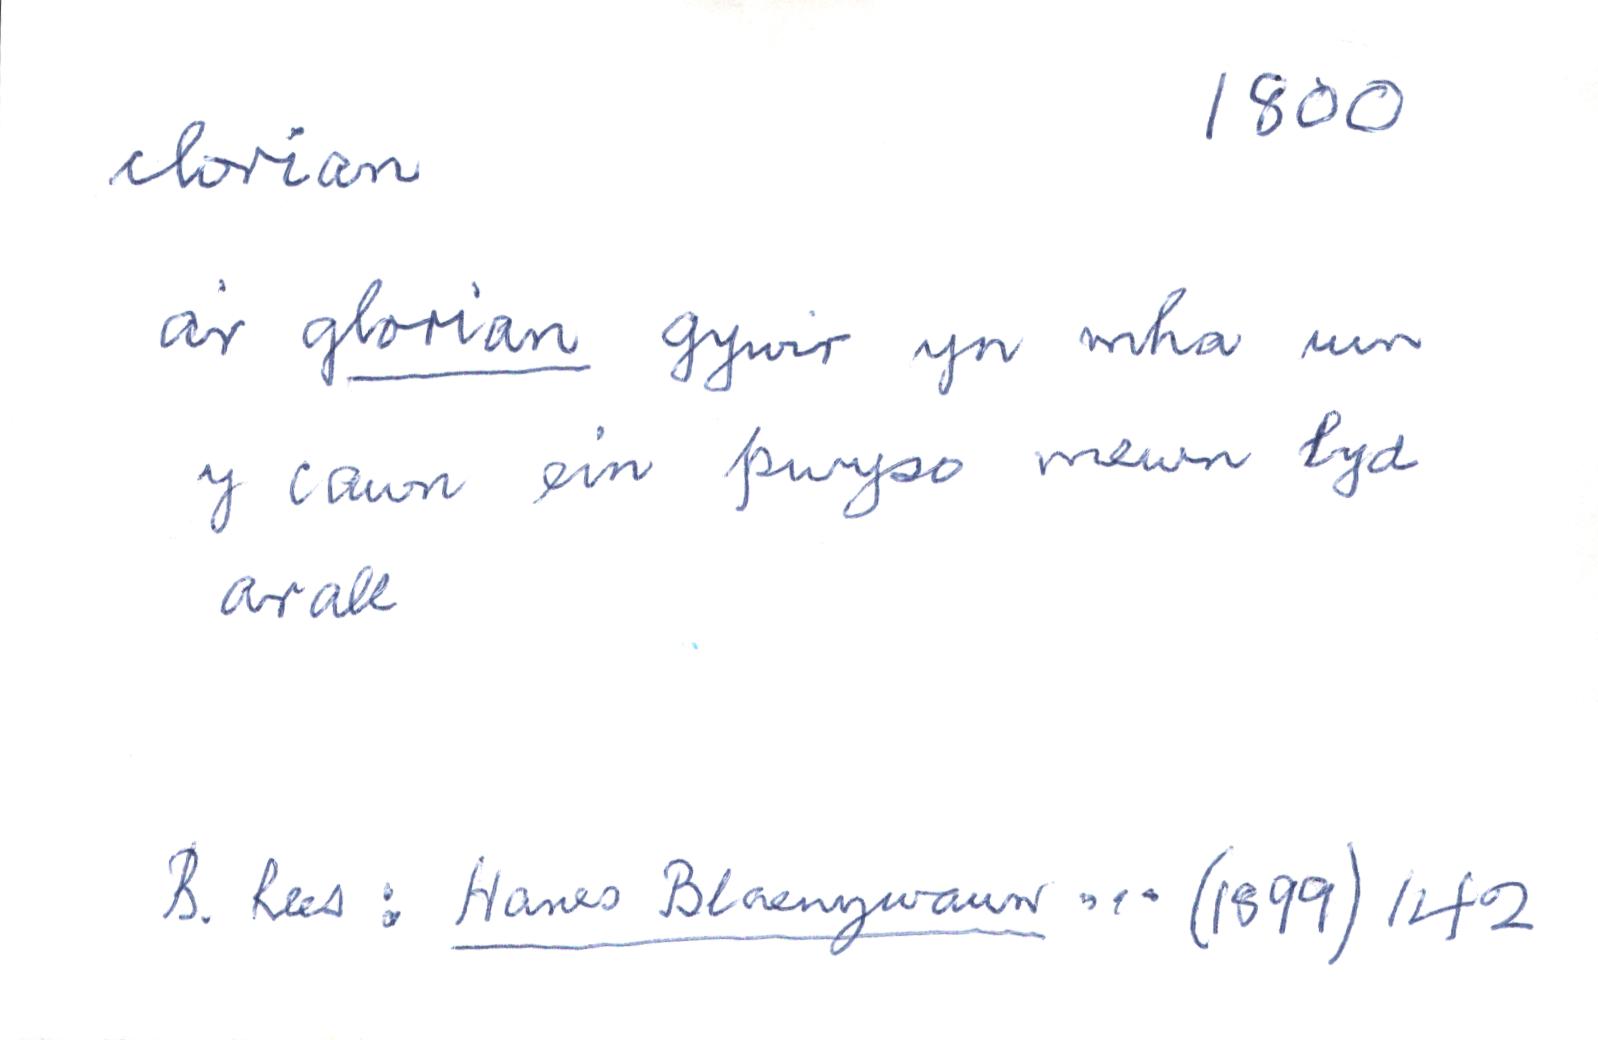 1800
clorian
a'r glorian gywir yn mha un
y cawn ein pwyso mewn byd
arall
B. Rees : Hanes Blaenywaun ... (1899) 142